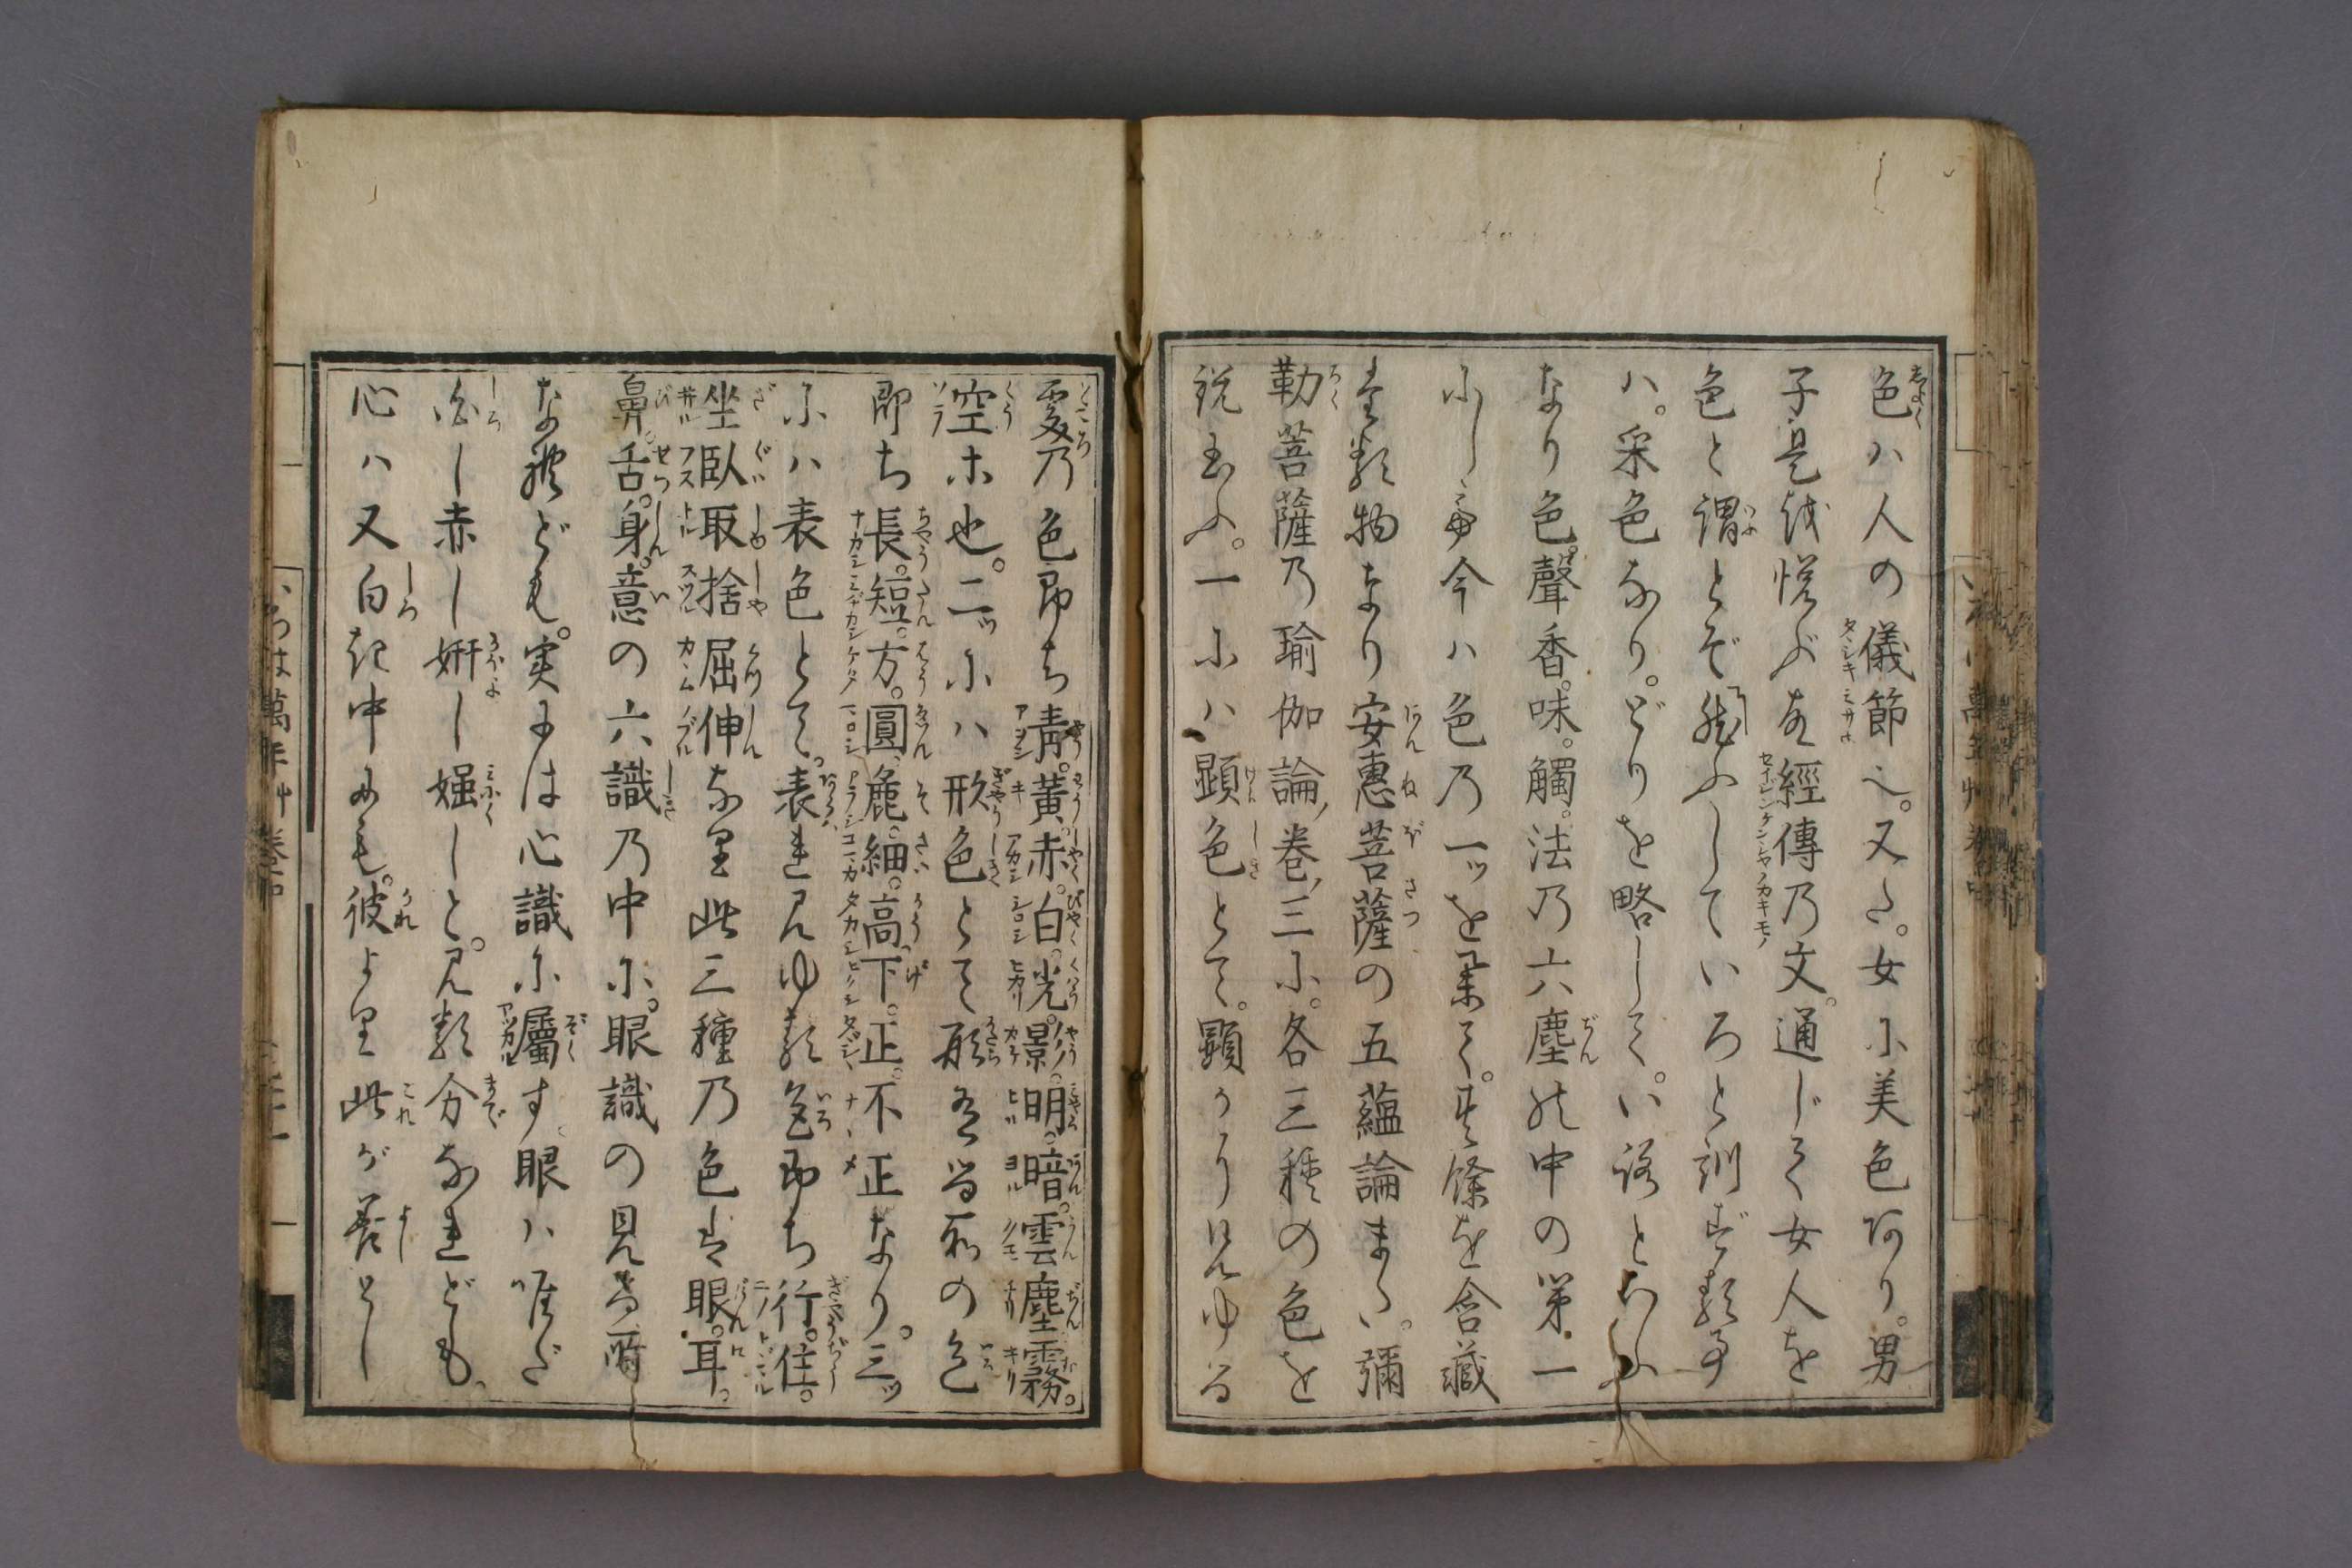 色ハ人の儀節也。又た。女に美色あり。男
子是を悦ぶ故経傳乃文。通じて女人を
色と謂とぞ然ふしていろと訓ずる事
ハ。采色なり。どりを略して。い路とあふ
なり色。聲香。味。觸。法乃六塵の中の第一
にして今ハ色乃一ッを挙て。其餘を含藏
する物なり安惠菩薩の五蘊論また。彌
勒菩薩乃瑜伽論、巻、三に。各三種の色を
説玉ふ。一にハ顯色とて。顯かり見ゆる
處乃色即ち青。黄。赤。白。光。影。明。暗。雲塵霧。
空ホ也。二ッにハ形色とて形有る所の色
即ち長。短。方。圓。麁。細。高。下。正。不正なり。三ッ
にハ表色とて。表れ見ゆる色即ち行。住。
坐臥取捨屈伸なり此三種乃色は眼。耳。
鼻。舌。身。意の六識乃中に。眼識の見る所
なれども。実には心識に屬す眼ハ唯だ
白し赤し妍し媸しと。見る分なれども。
心ハ又白き中にも。彼より此が善とし